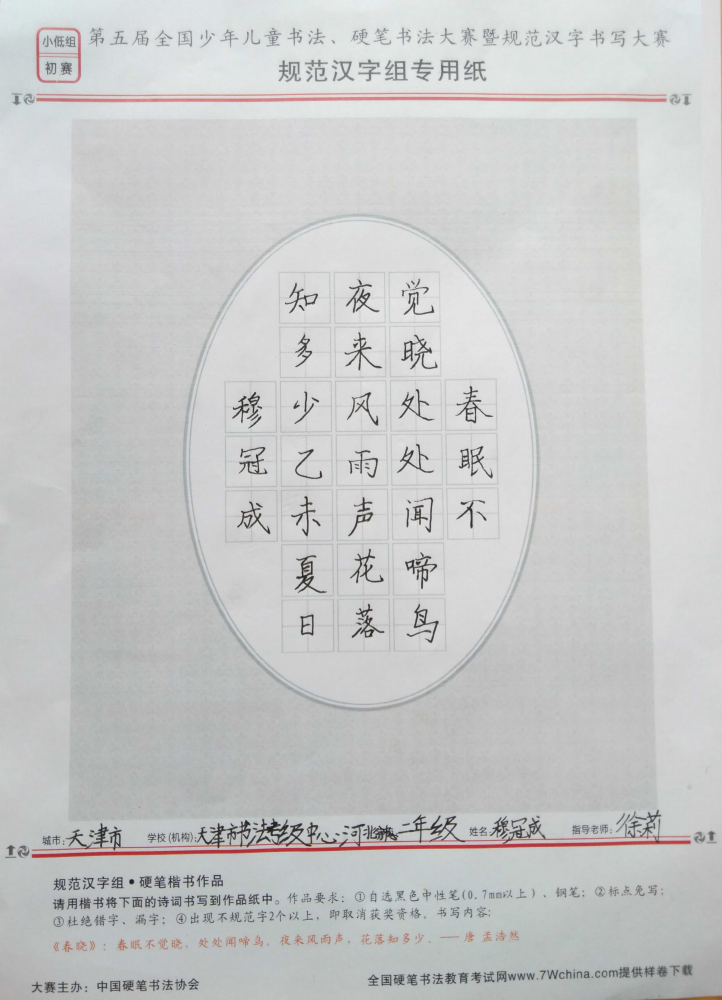 小低组
初赛
第五届全国少年儿童书法、硬笔书法大赛暨规范汉字书写大赛
规范汉字组专用纸
春眠不
觉晓处处闻啼鸟
夜来风雨声花落
知多少乙未夏日
穆冠成
城市：天津市 学校(机构)：天津市书法考级中心河北 二年级 姓名：穆冠成 指导老师：徐莉
规范汉字组•硬笔楷书作品
请用楷书将下面的诗词书写到作品纸中。作品要求：①自选黑色中性笔(0.7mm以上)、钢笔；②标点免写；
③杜绝错字、漏字；④出现不规范字2个以上，即取消获奖资格。书写内容：
《春晓》：春眠不觉晓，处处闻啼鸟，夜来风雨声，花落知多少。——唐 孟浩然
大赛主办：中国硬笔书法协会
全国硬笔书法教育考试网www.7Wchina.com提供样卷下载